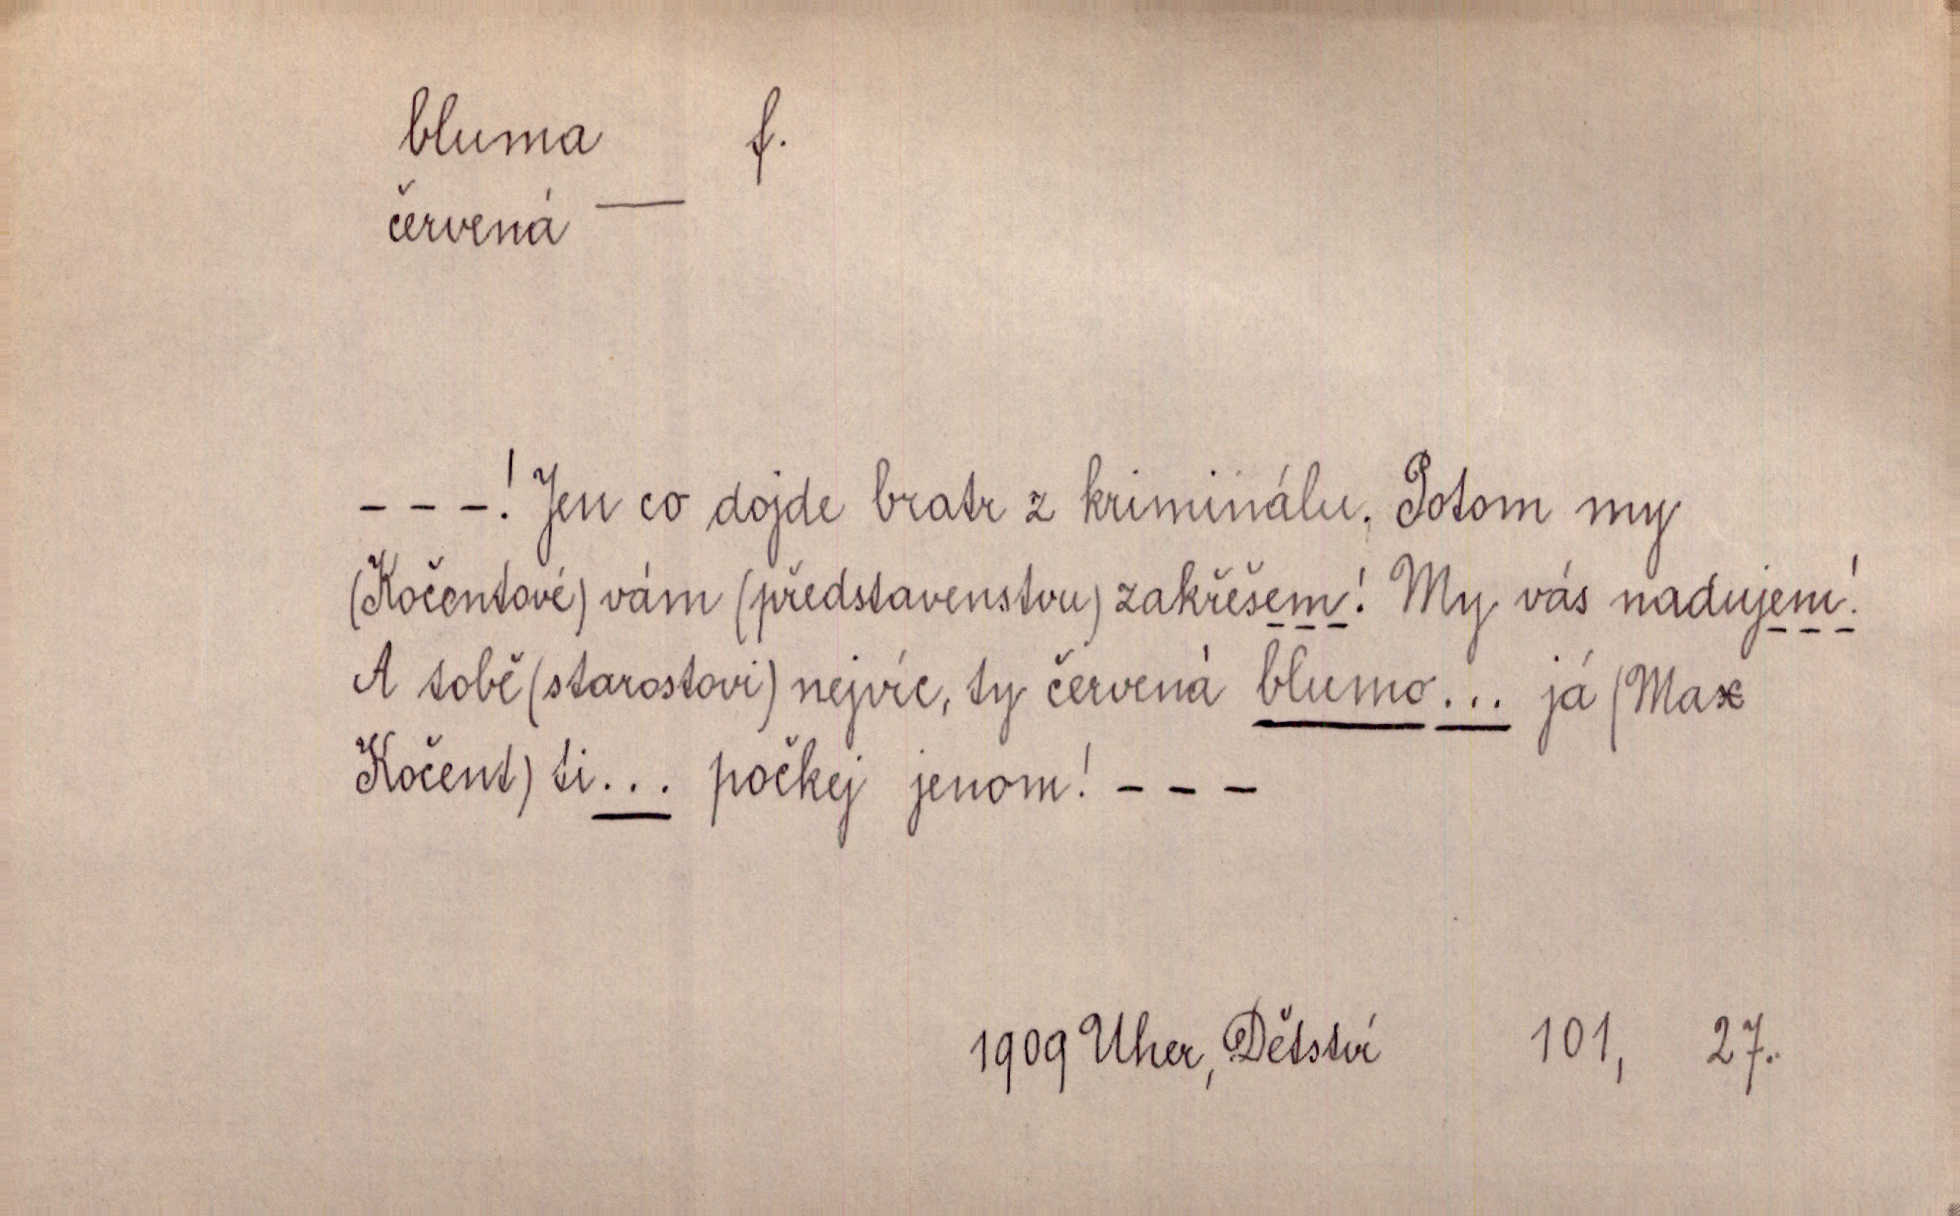 bluma f.
červená —
– – –! Jen co dojde bratr z kriminálu. Potom my
(Kočentové) vám (představenstvu) zakřešem! My vás nadujem!
A tobě (starostovi) nejvíc, ty červená blumo... já (Max
Kočent) ti... počkej jenom! – – –
1909 Uher, Dětství 101, 27.